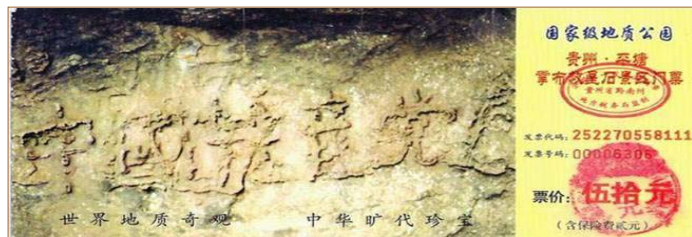 中国共产党
世界地质奇观 中华旷代珍宝
国家级地质公园
贵州·平塘
掌布藏字石景区门票
贵州省黔南州
发票代码：252270558111
发票号码：00006306
票价：伍拾元
（含保险费贰元）